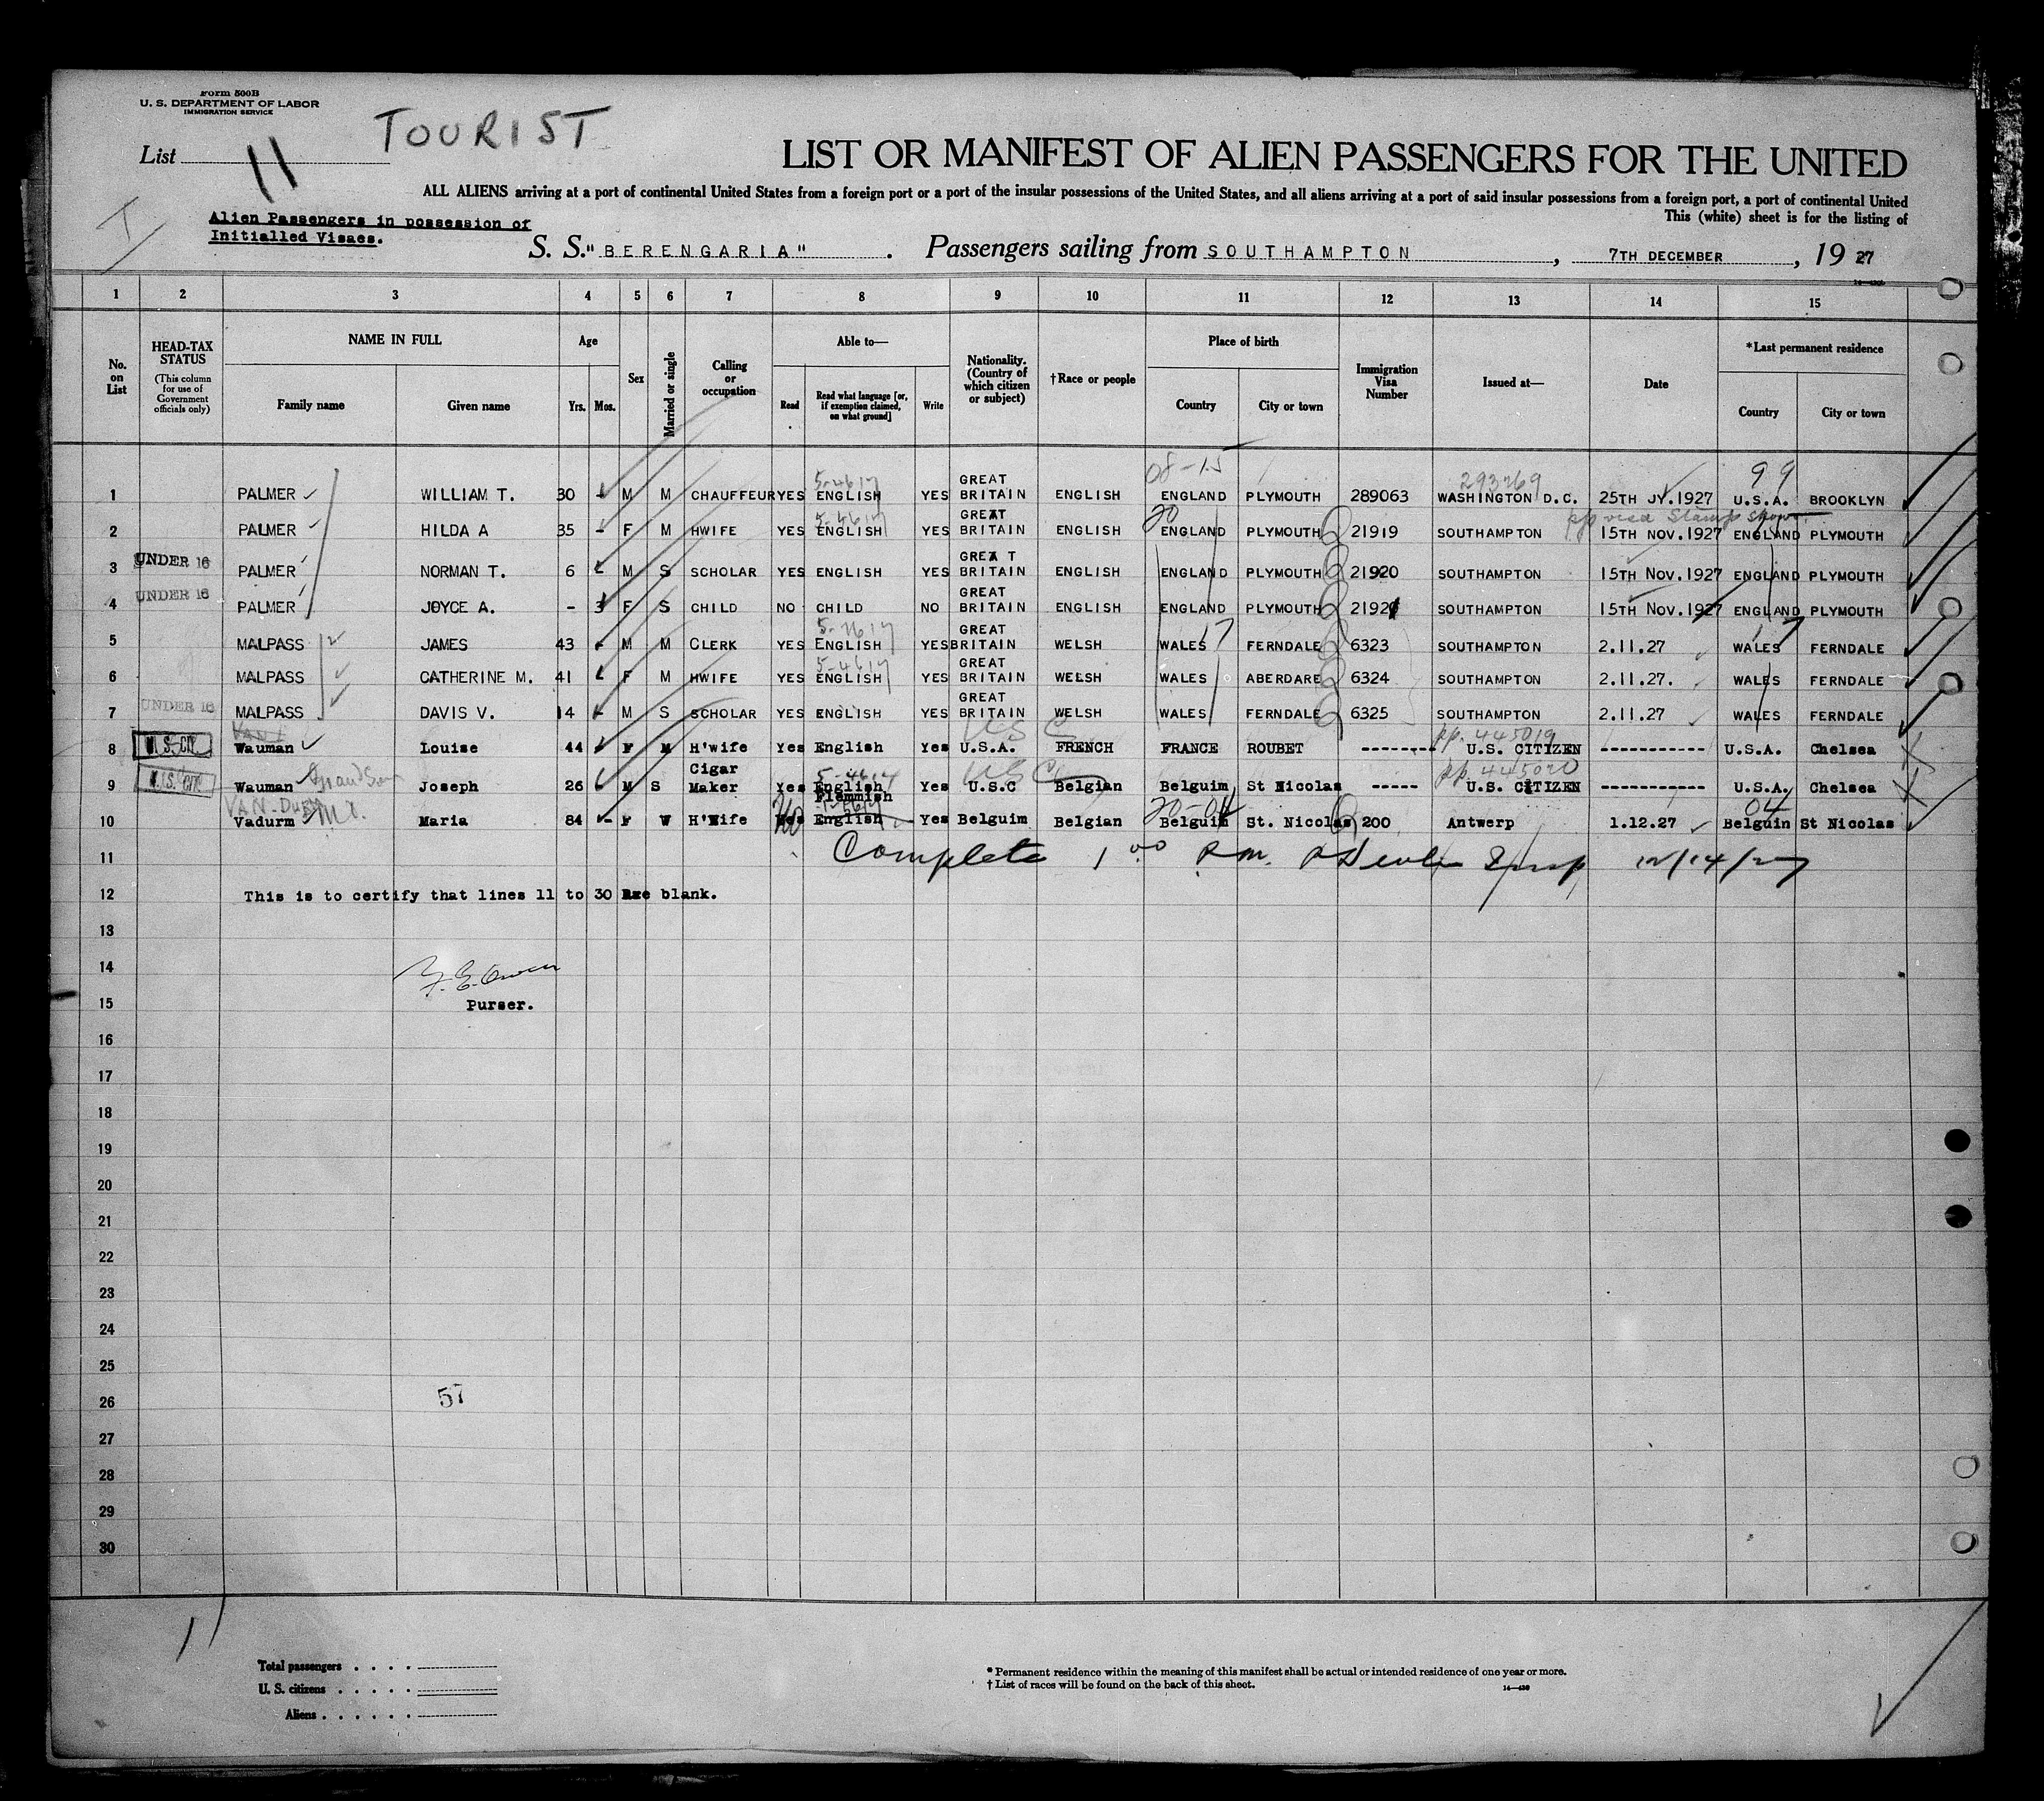 Form 500B
U. S. DEPARTMENT OF LABOR
IMMIGRATION SERVICE
TOURIST
List 11
LIST OR MANIFEST OF ALIEN PASSENGERS FOR THE UNITED
ALL ALIENS arriving at a port of continental United States from a foreign port or a port of the insular possessions of the United States, and all aliens arriving at a port of said insular possessions from a foreign port, a port of continental United
This (white) sheet is for the listing of
Alien Passengers in possession of
Initialled Visaes.
S. S. "BERENGARIA". Passengers sailing from SOUTHAMPTON, 7TH DECEMBER, 19 27
1 2 3 4 5 6 7 8 9 10 11 12 13 14 15
No. on List
HEAD-TAX STATUS (This column for use of Government officials only)
NAME IN FULL Family name Given name
Age Yrs. Mos.
Sex
Married or single
Calling or occupation
Able to— Read Read what language [or, if exemption claimed, on what ground] Write
Nationality. (Country of which citizen or subject)
†Race or people
Place of birth Country City or town
Immigration Visa Number
Issued at—
Date
*Last permanent residence Country City or town
08-15 293769 99
1 PALMER WILLIAM T. 30 - M M CHAUFFEUR YES 5-4614 ENGLISH YES GREAT BRITAIN ENGLISH ENGLAND PLYMOUTH 289063 WASHINGTON D.C. 25TH JY.1927 U.S.A. BROOKLYN
2 PALMER HILDA A 35 - F M HWIFE YES 5-4614 ENGLISH YES GREAT BRITAIN ENGLISH 20 ENGLAND PLYMOUTH 21919 SOUTHAMPTON 15TH NOV.1927 ENGLAND PLYMOUTH
UNDER 16
3 PALMER NORMAN T. 6 - M S SCHOLAR YES ENGLISH YES GREAT BRITAIN ENGLISH ENGLAND PLYMOUTH 21920 SOUTHAMPTON 15TH Nov.1927 ENGLAND PLYMOUTH
UNDER 16
4 PALMER JOYCE A. - 3 F S CHILD NO CHILD NO GREAT BRITAIN ENGLISH ENGLAND PLYMOUTH 21921 SOUTHAMPTON 15TH Nov.1927 ENGLAND PLYMOUTH
5 MALPASS JAMES 43 - M M CLERK YES ENGLISH YES GREAT BRITAIN WELSH WALES 17 FERNDALE 6323 SOUTHAMPTON 2.11.27 WALES 17 FERNDALE
6 MALPASS CATHERINE M. 41 - F M HWIFE YES 5-4614 ENGLISH YES GREAT BRITAIN WELSH WALES ABERDARE 6324 SOUTHAMPTON 2.11.27. WALES FERNDALE
UNDER 16
7 MALPASS DAVIS V. 14 - M S SCHOLAR YES ENGLISH YES GREAT BRITAIN WELSH WALES FERNDALE 6325 SOUTHAMPTON 2.11.27 WALES FERNDALE
U.S. CIT. USC pp. 445019
8 Wauman Louise 44 - F M H'wife Yes English Yes U.S.A. FRENCH FRANCE ROUBET -------- U.S. CITIZEN ----------- U.S.A. Chelsea
U.S. CIT. Grandson USC pp. 445020
9 Wauman Joseph 26 - M S Cigar Maker Yes 5-4614 English Yes U.S.C Belgian Belguim St Nicolas ----- U.S. CITIZEN ----------- U.S.A. Chelsea
Flemmish 20-04 04
10 Vadurm Maria 84 - F W H'Wife Yes No English Yes Belguim Belgian Belguim St. Nicolas 200 Antwerp 1.12.27 Belguin St Nicolas
11 Complete 1 00 P.m. 12/14/27
12 This is to certify that lines 11 to 30 are blank.
13
14
15 Purser.
16
17
18
19
20
21
22
23
24
25
26 57
27
28
29
30
Total passengers . . . .
U. S. citizens . . . . .
Aliens . . . . . .
* Permanent residence within the meaning of this manifest shall be actual or intended residence of one year or more.
† List of races will be found on the back of this sheet. 14—430